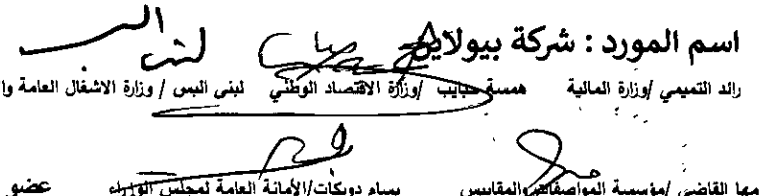 اسم المورد : شركة بيولاين
رائد التميمي /وزارة المالية همسة حبايب /وزارة الاقتصاد الوطني لبنى البس / وزارة الاشغال العامة وا
مها القاضي /مؤسسة المواصفات والمقاييس بسام دويكات/الأمانة العامة لمجلس الوزراء عضو